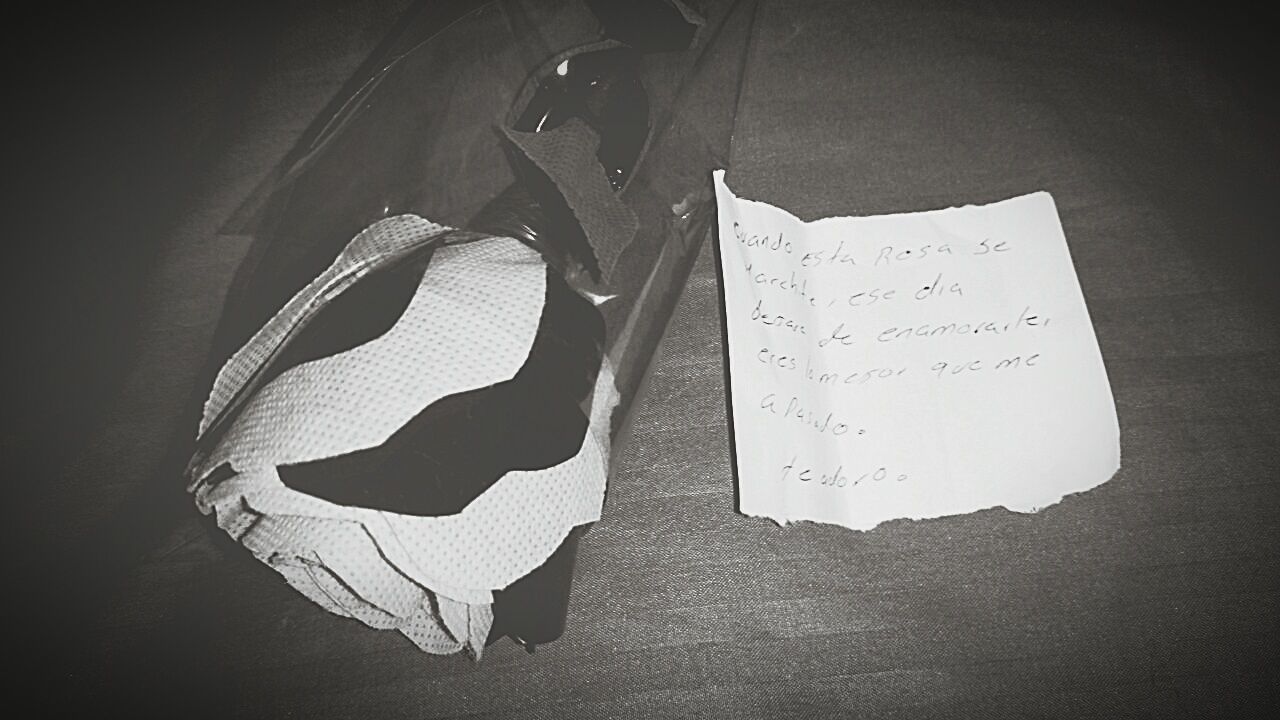 Cuando esta Rosa se
Marchite, ese dia
de enamorarte,
eres lo mejor que me
a Pasado.
teodoro.